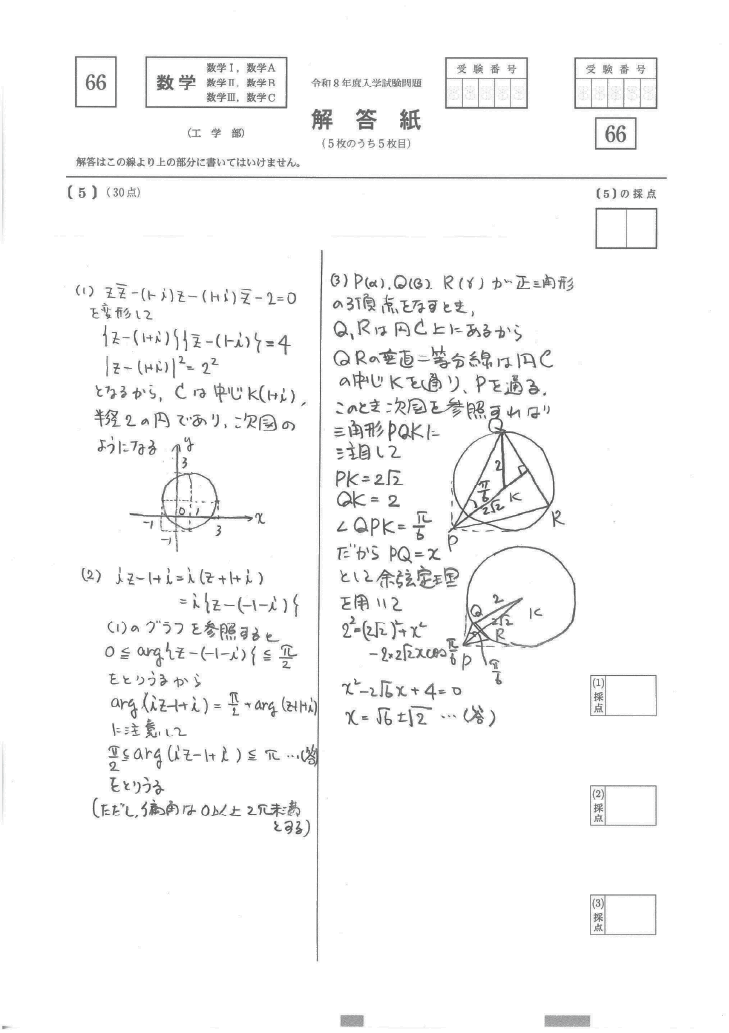 66
数学
数学Ⅰ，数学A
数学Ⅱ，数学B
数学Ⅲ，数学C
(工 学 部)
令和8年度入学試験問題
解 答 紙
(5枚のうち5枚目)
受 験 番 号
受 験 番 号
66
解答はこの線より上の部分に書いてはいけません。
〔5〕(30点)
〔5〕の採点
(1) zz̄-(1-i)z-(1+i)z̄-2=0
を変形して
{z-(1+i)}{z̄-(1-i)}=4
|z-(1+i)|²=2²
となるから，Cは中心K(1+i)，
半径2の円であり，次図の
ようになる
y
3
0
1
-1
3
x
-1
(2) iz-1+i=i(z+1+i)
=i{z-(-1-i)}
(1)のグラフを参照すると
0≦arg{z-(-1-i)}≦π/2
をとりうるから
arg(iz-1+i)=π/2+arg(z+1+i)
に注意して
π/2≦arg(iz-1+i)≦π …(答)
をとりうる
(ただし，偏角は0以上2π未満
とする)
(3) P(α)，Q(β)，R(γ)が正三角形
の3頂点をなすとき，
Q，Rは円C上にあるから
QRの垂直二等分線は円C
の中心Kを通り，Pを通る．
このとき次図を参照すれば
三角形PQKに
注目して
PK=2√2
QK=2
∠QPK=π/6
だから PQ=x
として余弦定理
を用いて
2²=(2√2)²+x²
-2×2√2xcosπ/6
x²-2√6x+4=0
x=√6±√2 …(答)
Q
2
π/6
K
2√2
R
P
2
K
Q
2√2
R
P
π/6
(1)
採
点
(2)
採
点
(3)
採
点